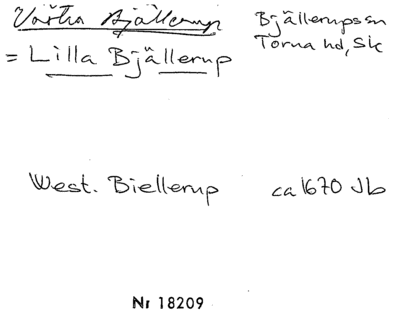 Västra Bjällerup
= Lilla Bjällerup
Bjällerupssn
Torna hd, Sk
West. Biellerup ca 1670 Jb
Nr 18209